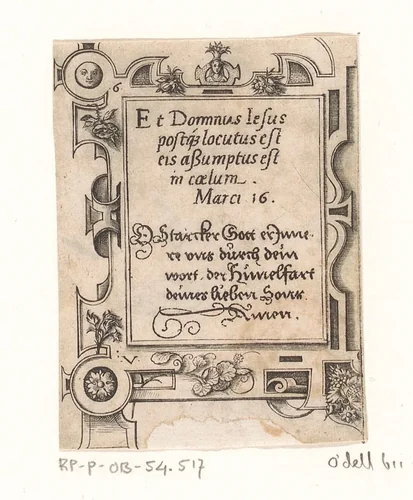 6
Et Domnus Iesus
postq̃ locutus est
eis aßumptus est
in cœlum.
Marci 16.
O Starcker Gott er
re vns durch dein
wort. der Himelfart
deines lieben Sons.
Amen.
V
RP-P-OB-54.517
O'dell 611